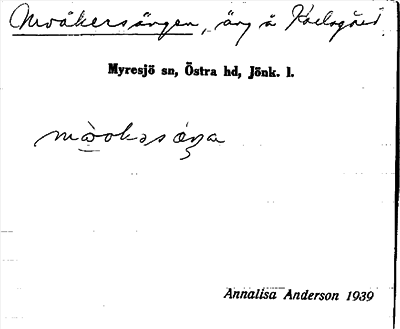 Moåkersängen, äng å Karlsgård.
Myresjö sn, Östra hd, Jönk. l.
Annalisa Anderson 1939